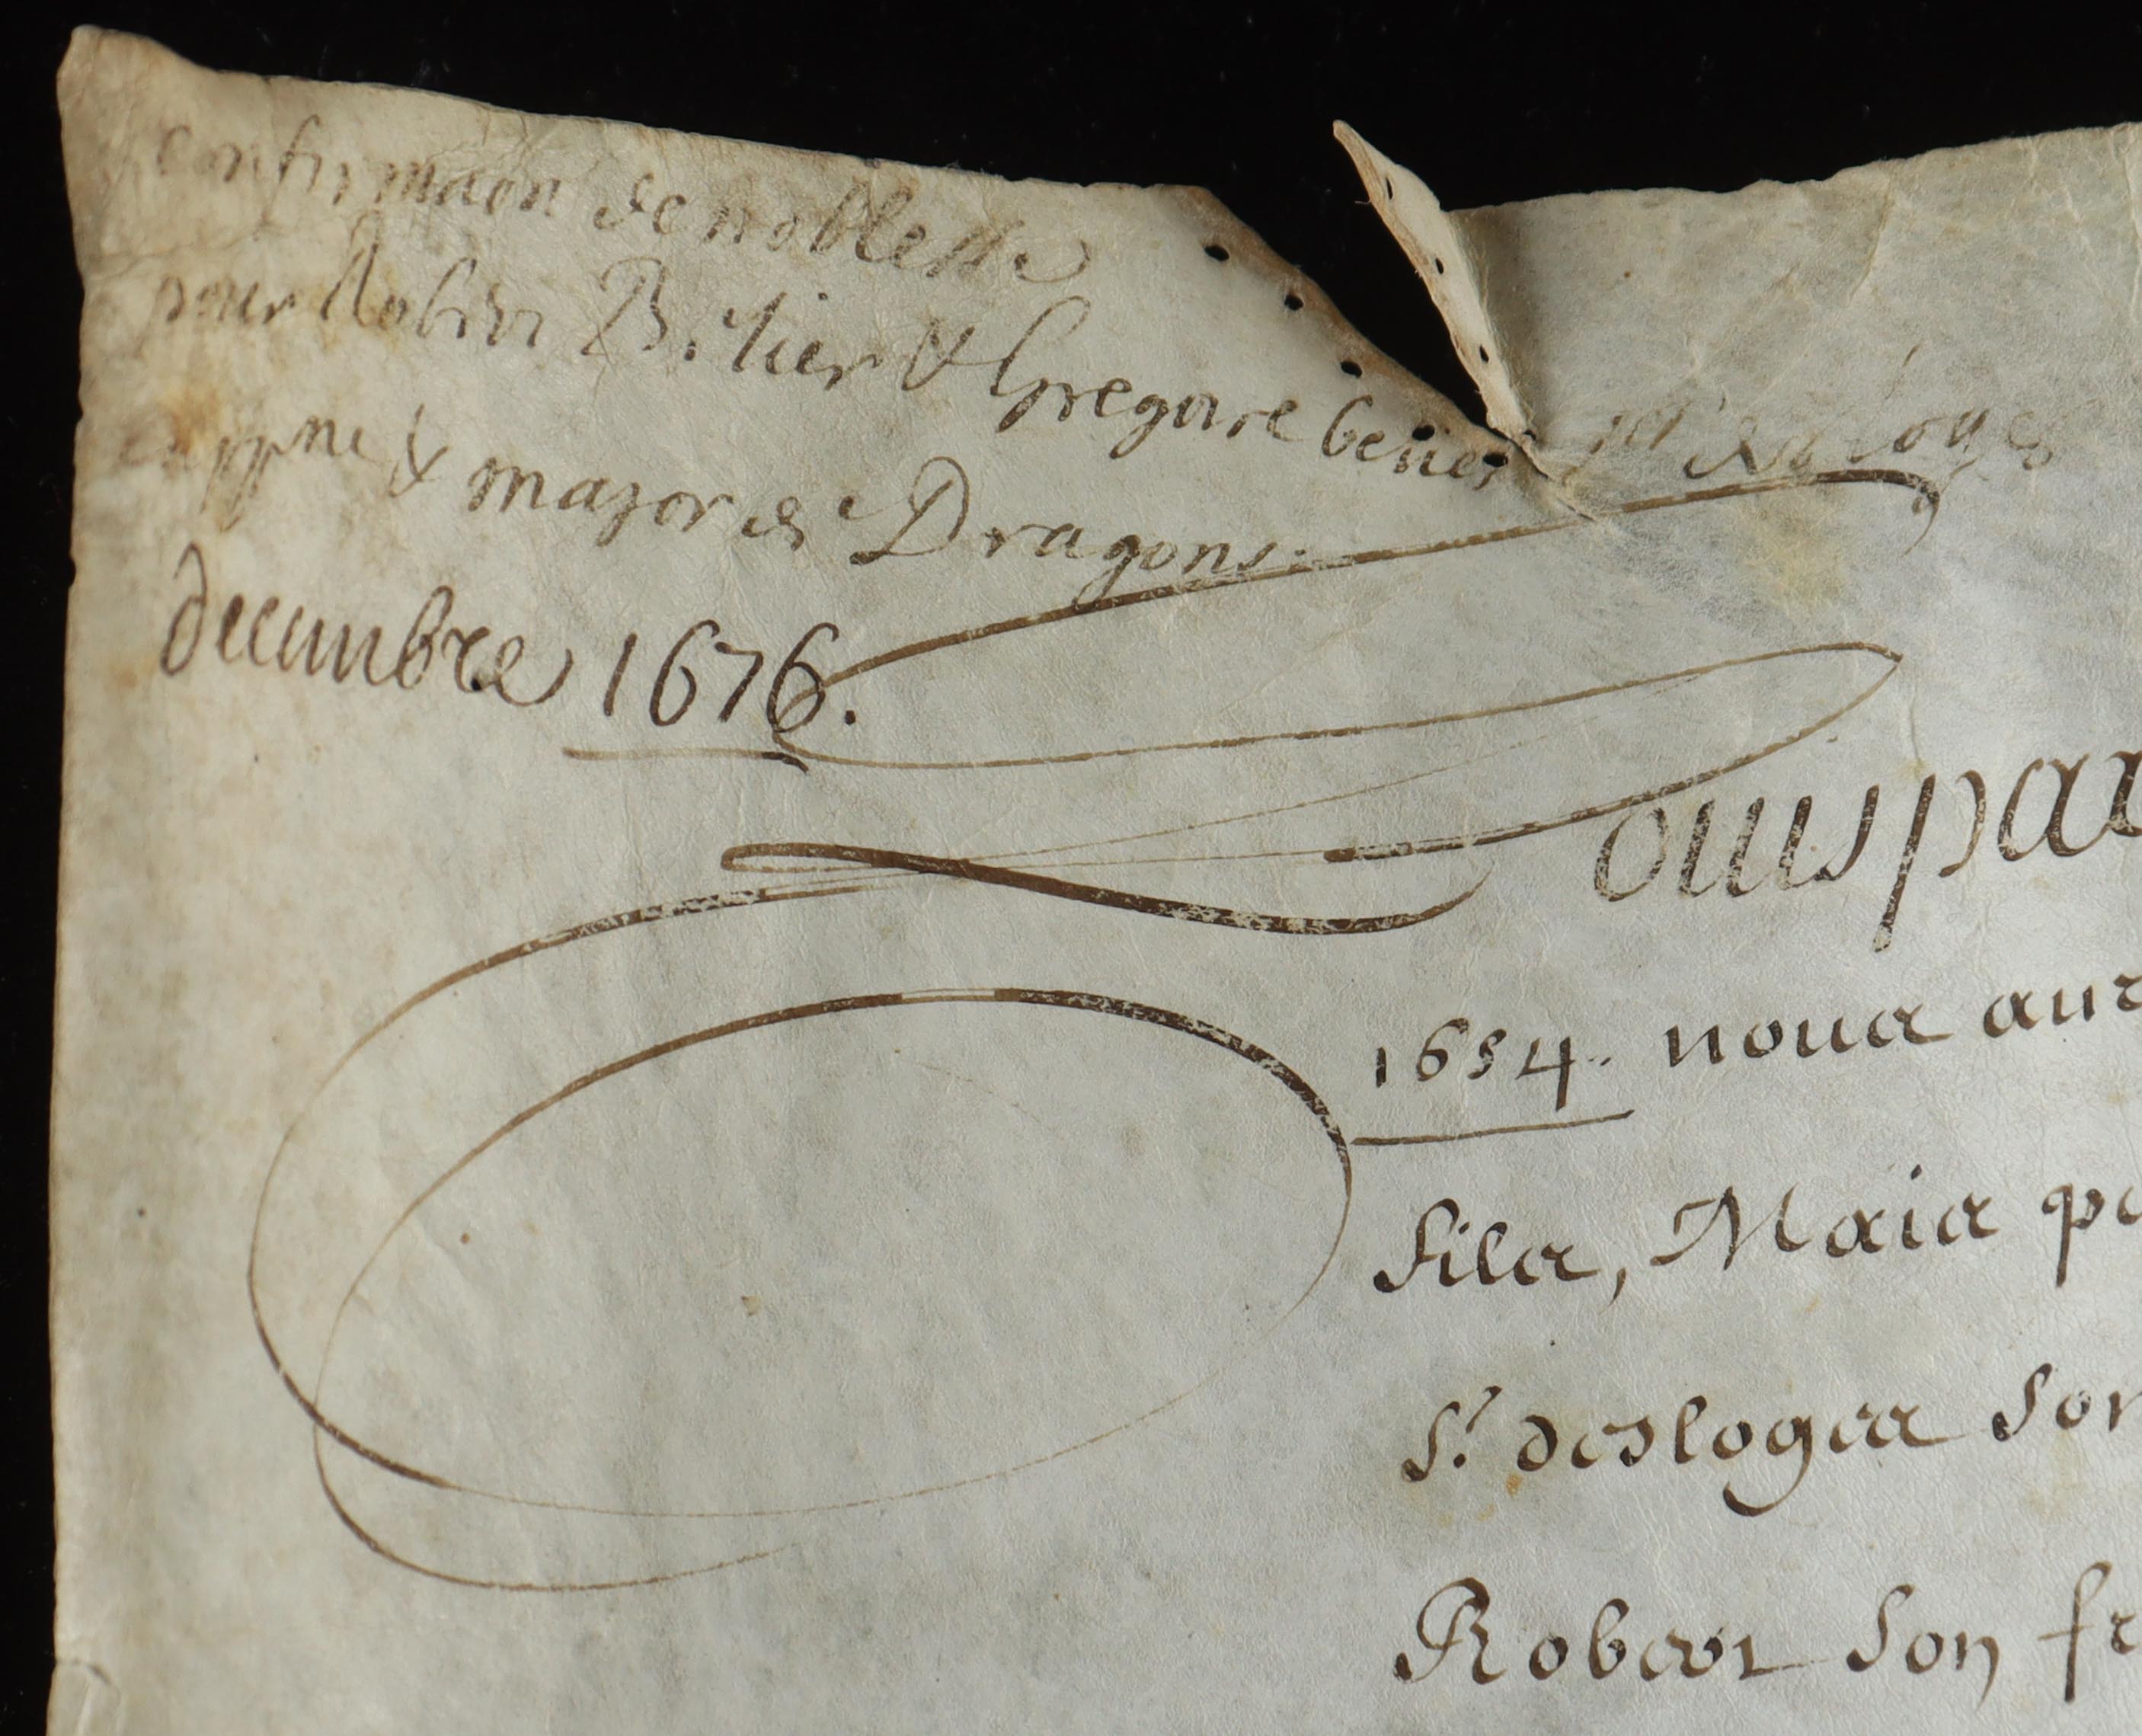 confirmaon de noblesse
pour Robert Betier & Gregoire betier sr desloges
cappne & major de Dragons.
decembre 1676.
ouis par
1654. nous
fils, Mais
Sr. desloges son
Robert Son